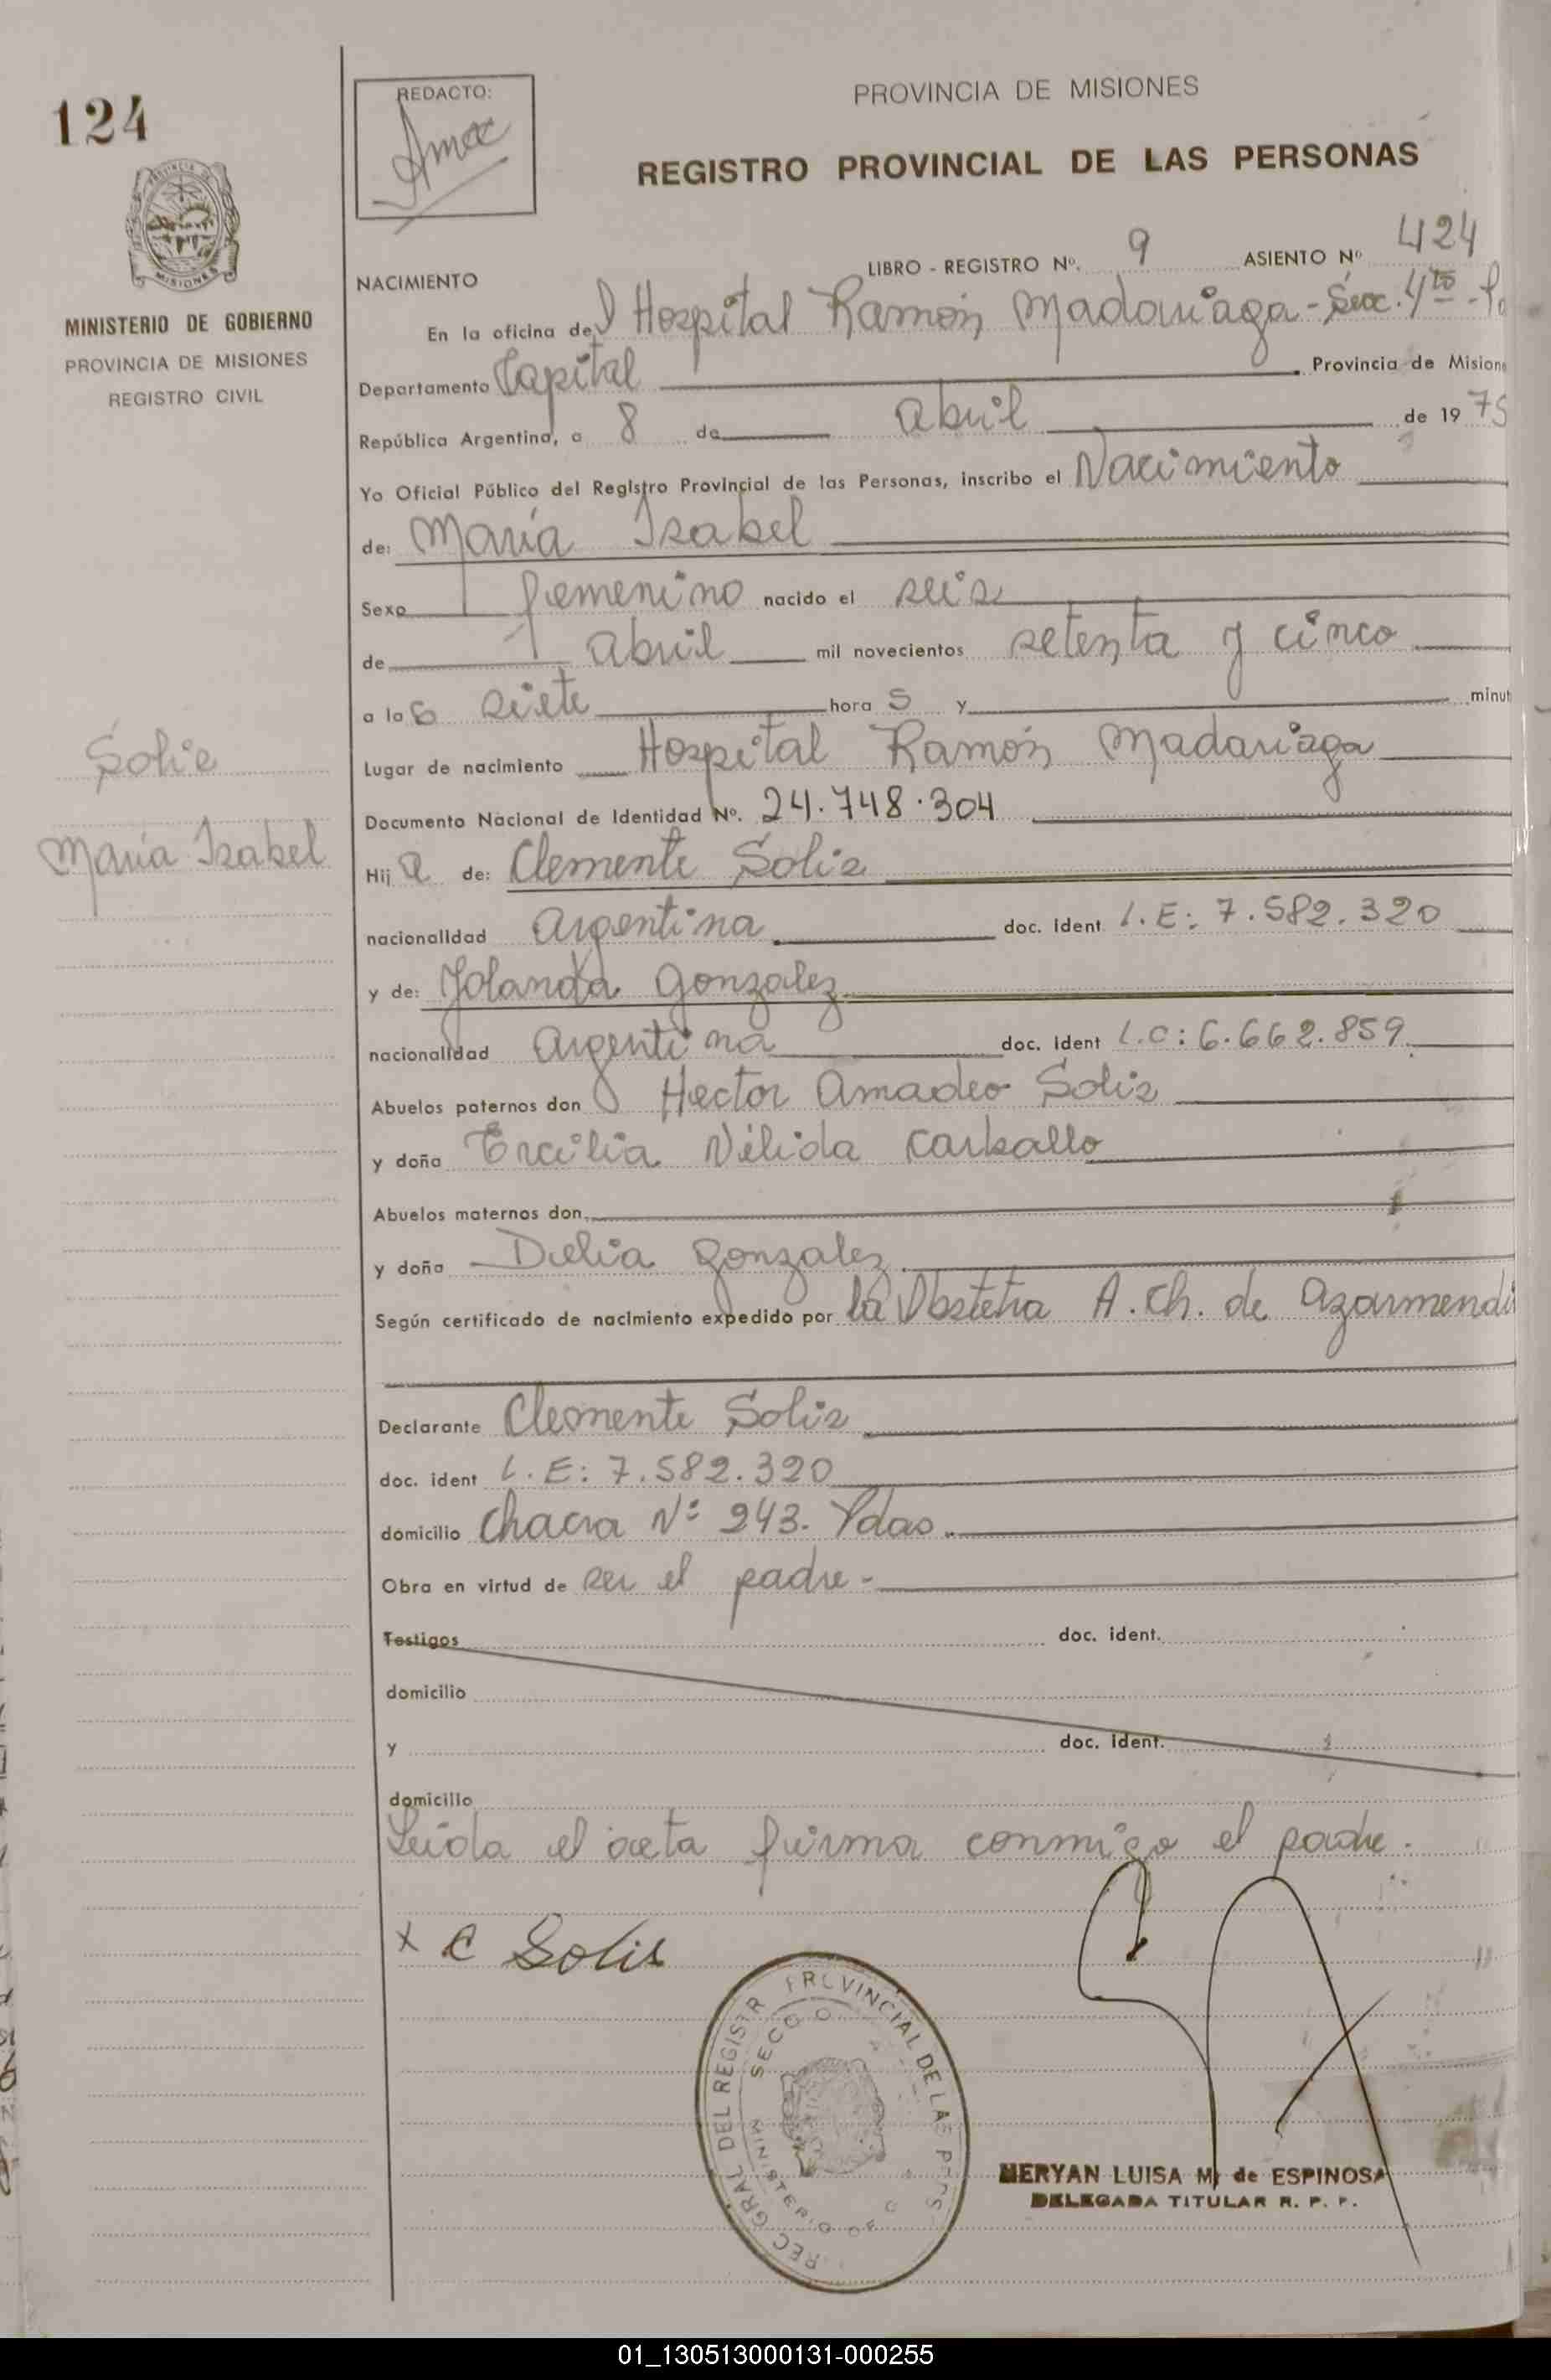 124
REDACTO:
PROVINCIA DE MISIONES
REGISTRO PROVINCIAL DE LAS PERSONAS
MINISTERIO DE GOBIERNO
PROVINCIA DE MISIONES
REGISTRO CIVIL
LIBRO - REGISTRO Nº. 9 ASIENTO Nº 424
NACIMIENTO
En la oficina del Hospital Ramón Madariaga - Sec. 4ta -
Departamento Capital Provincia de Mision
República Argentina, a 8 de abril de 1975
Yo Oficial Público del Registro Provincial de las Personas, inscribo el Nacimiento
de: María Isabel
Sexo femenino nacido el seis
de abril mil novecientos setenta y cinco
a las siete horas y minut
Lugar de nacimiento Hospital Ramón Madariaga
Documento Nacional de Identidad Nº. 24.748.304
Solis
María Isabel
Hija de: Clemente Solis
nacionalidad Argentina doc. ident L.E: 7.582.320
y de: Yolanda Gonzalez
nacionalidad Argentina doc. ident L.C: 6.662.859
Abuelos paternos don Hector Amadeo Solis
y doña Ercilia Nélida Carballo
Abuelos maternos don
y doña Delia Gonzalez
Según certificado de nacimiento expedido por la Obstetra A. Ch. de Azarmendi
Declarante Clemente Solis
doc. ident L.E: 7.582.320
domicilio Chacra Nº 243. Pdas.
Obra en virtud de ser el padre -
Testigos doc. ident.
domicilio
y doc. ident.
domicilio
Leida el acta firma conmigo el padre.
x C Solis
MERYAN LUISA M. de ESPINOSA
DELEGADA TITULAR R. P. P.
01_130513000131-000255